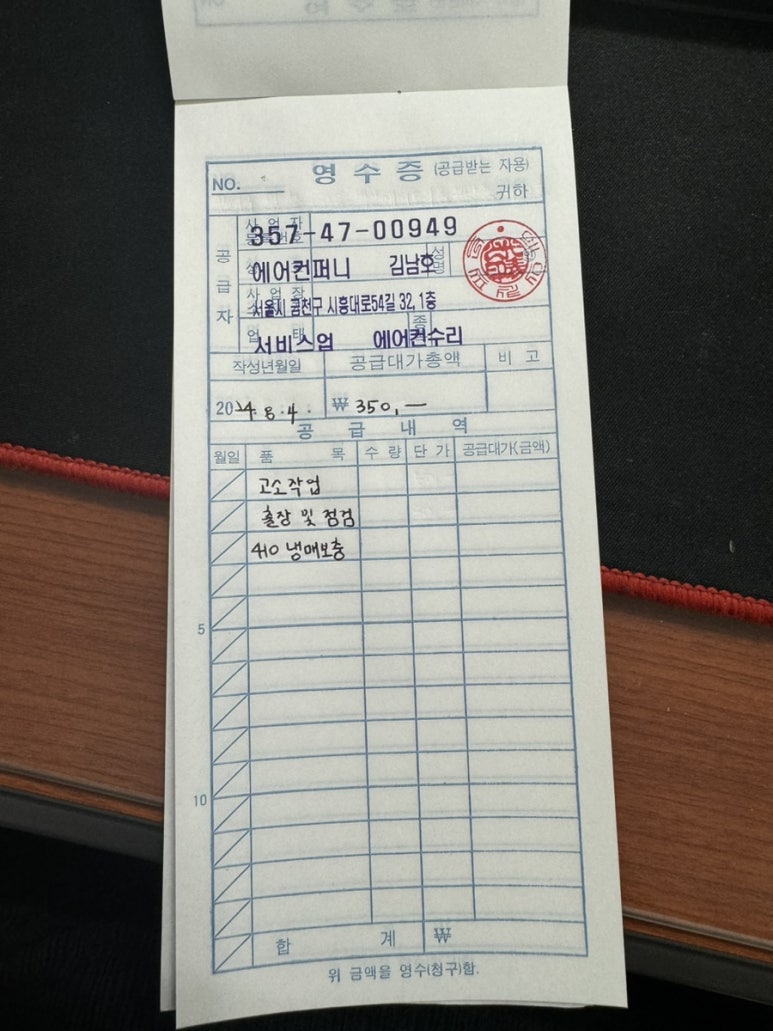 NO. 영수증 (공급받는 자용)
귀하
공급자
사업자등록번호 357-47-00949
에어컨퍼니 성명 김남호
사업장 서울시 금천구 시흥대로54길 32, 1층
업태 서비스업 종 에어컨수리
작성년월일 공급대가총액 비고
2024.8.4. ₩ 350,—
공급내역
월일 품목 수량 단가 공급대가(금액)
고소작업
출장 및 점검
410 냉매보충
5
10
합계 ₩
위 금액을 영수(청구)함.